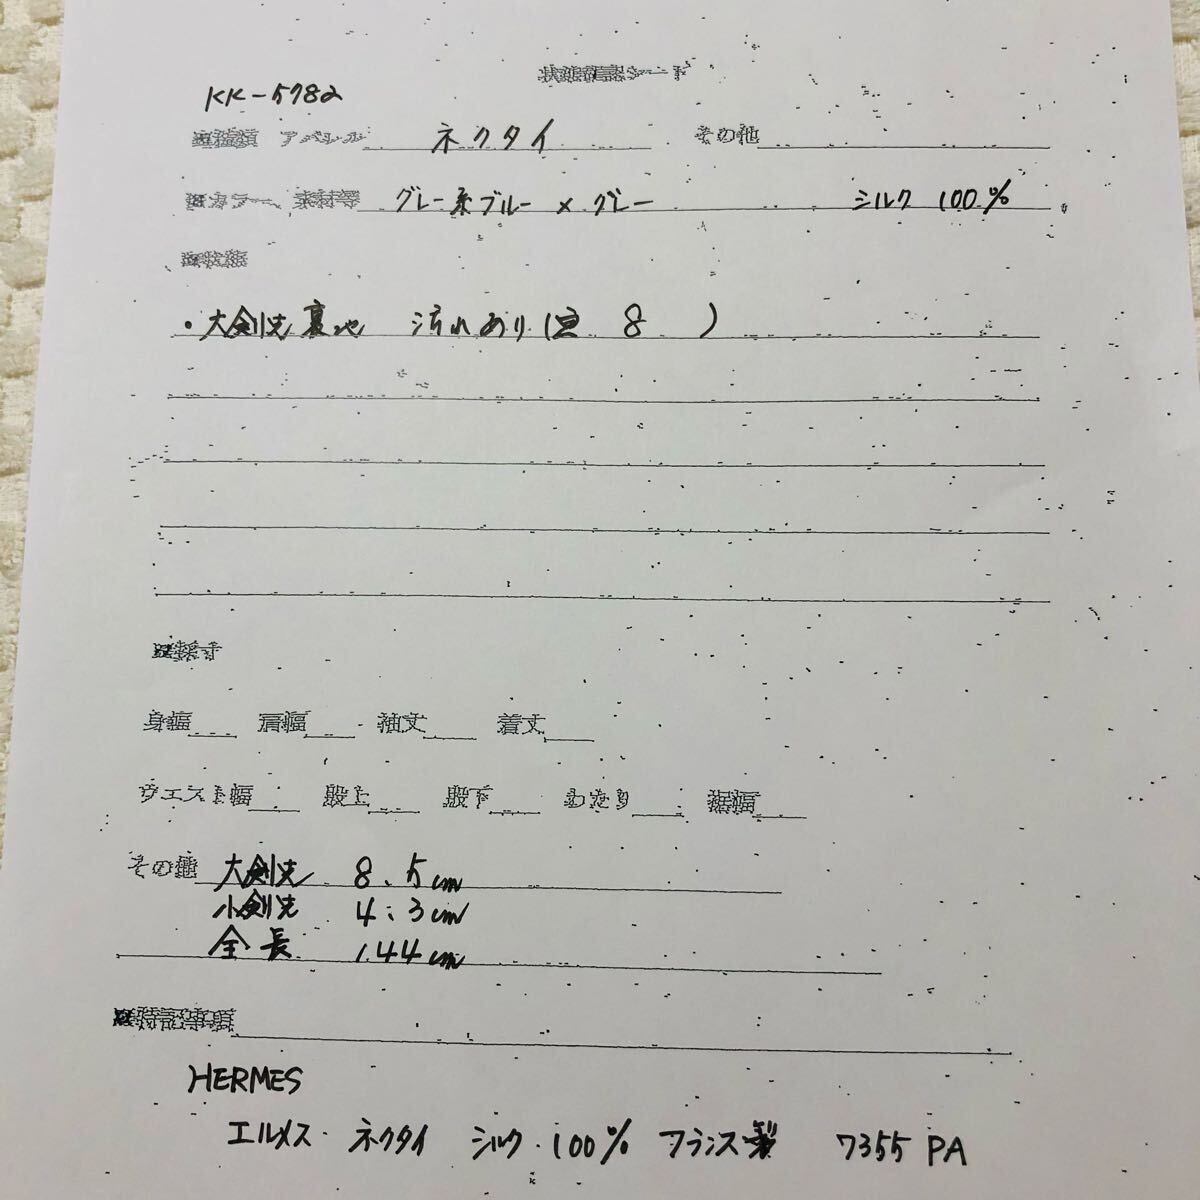 状態確認シート
KK-5782
■種類 アパレル ネクタイ その他
■カラー、素材等 グレー系ブルー×グレー シルク 100%
■状態
・大剣先裏地 汚れあり( 8 )
■採寸
身幅 肩幅 袖丈 着丈
ウエスト幅 股上 股下 わたり 裾幅
その他 大剣先 8.5cm
小剣先 4.3cm
全長 144cm
■特記事項
HERMES
エルメス・ネクタイ シルク・100% フランス製 7355 PA